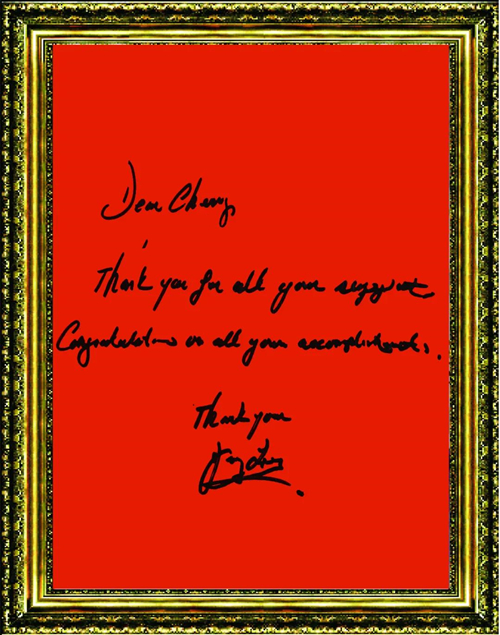 Dear Cherry,
Thank you for all your support
Congratulations on all your accomplishments.
Thank you